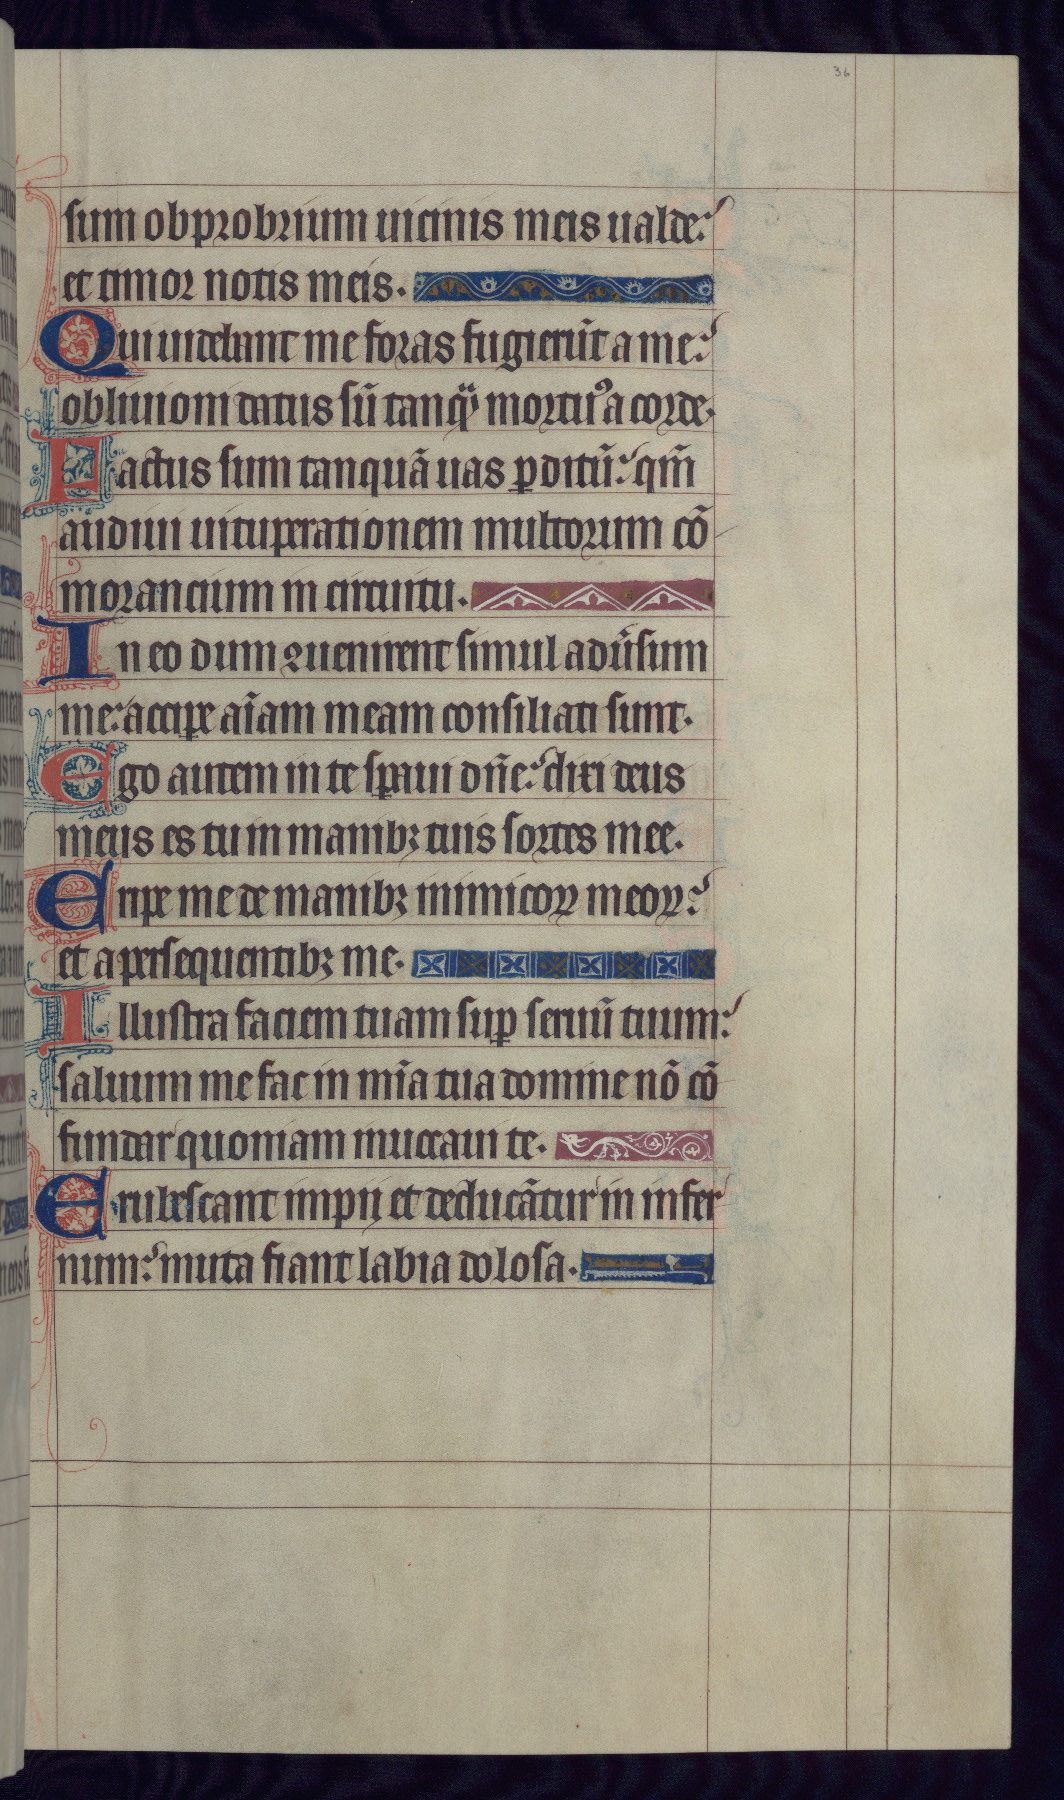 36
sum obprobrium uicinis meis ualde:
et timor notis meis.
Qui uidebant me foras fugierūt a me:
obliuioni datus sū tanqͣ mortuꝰ a corde.
Factus sum tanquā uas ꝑditū: qm̄
audiui uituꝑationem multorum cō
morancium in circuitu.
In eo dum ꝯuenirent simul adūsum
me: acciꝑe aīam meam consiliati sunt.
Ego autem in te sꝑaui dn̄e: dixi deus
meus es tu in manibꝫ tuis sortes mee.
Eripe me de manibꝫ inimicoꝝ meoꝝ:
et a persequentibꝫ me.
Illustra faciem tuam suꝑ seruū tuum:
saluum me fac in mīa tua domine nō cō
fundar quoniam inuocaui te.
Erubescant impij et deducātur in infer
num: muta fiant labia dolosa.